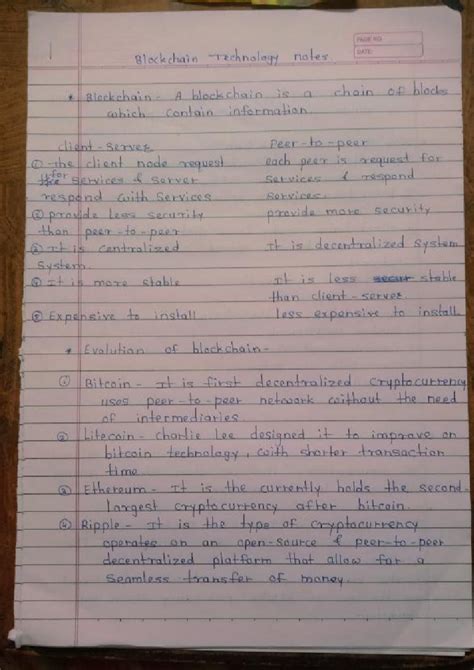 PAGE NO.
DATE:
Blockchain Technology notes.
* Blockchain - A blockchain is a chain of blocks
which contain information.
client-server
Peer-to-peer
① The client node request
each peer is request for
for services & server
services & respond
respond with services
services.
② provide less security
provide more security
than peer-to-peer
③ It is centralized
It is decentralized system
system.
④ It is more stable
It is less secur stable
than client-server
⑤ Expensive to install
less expensive to install
* Evolution of blockchain -
① Bitcoin - It is first decentralized cryptocurrency
uses peer-to-peer network without the need
of intermediaries.
② Litecoin - charlie Lee designed it to improve on
bitcoin technology, with shorter transaction
time
③ Ethereum - It is the currently holds the second
largest cryptocurrency after bitcoin.
④ Ripple - It is the type of cryptocurrency
operates on an open-source & peer-to-peer
decentralized platform that allow for a
seamless transfer of money.